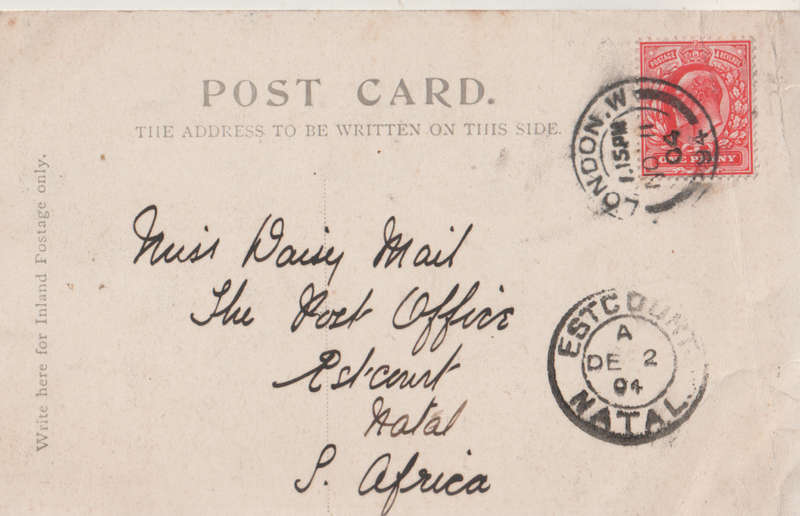 POST CARD.
THE ADDRESS TO BE WRITTEN ON THIS SIDE.
Write here for Inland Postage only.
POSTAGE & REVENUE
ONE PENNY
LONDON. W
1.15PM
NO 11
04
Miss Daisy Mail
The Post Office
Estcourt
Natal
S. Africa
ESTCOURT
A
DE 2
04
NATAL.